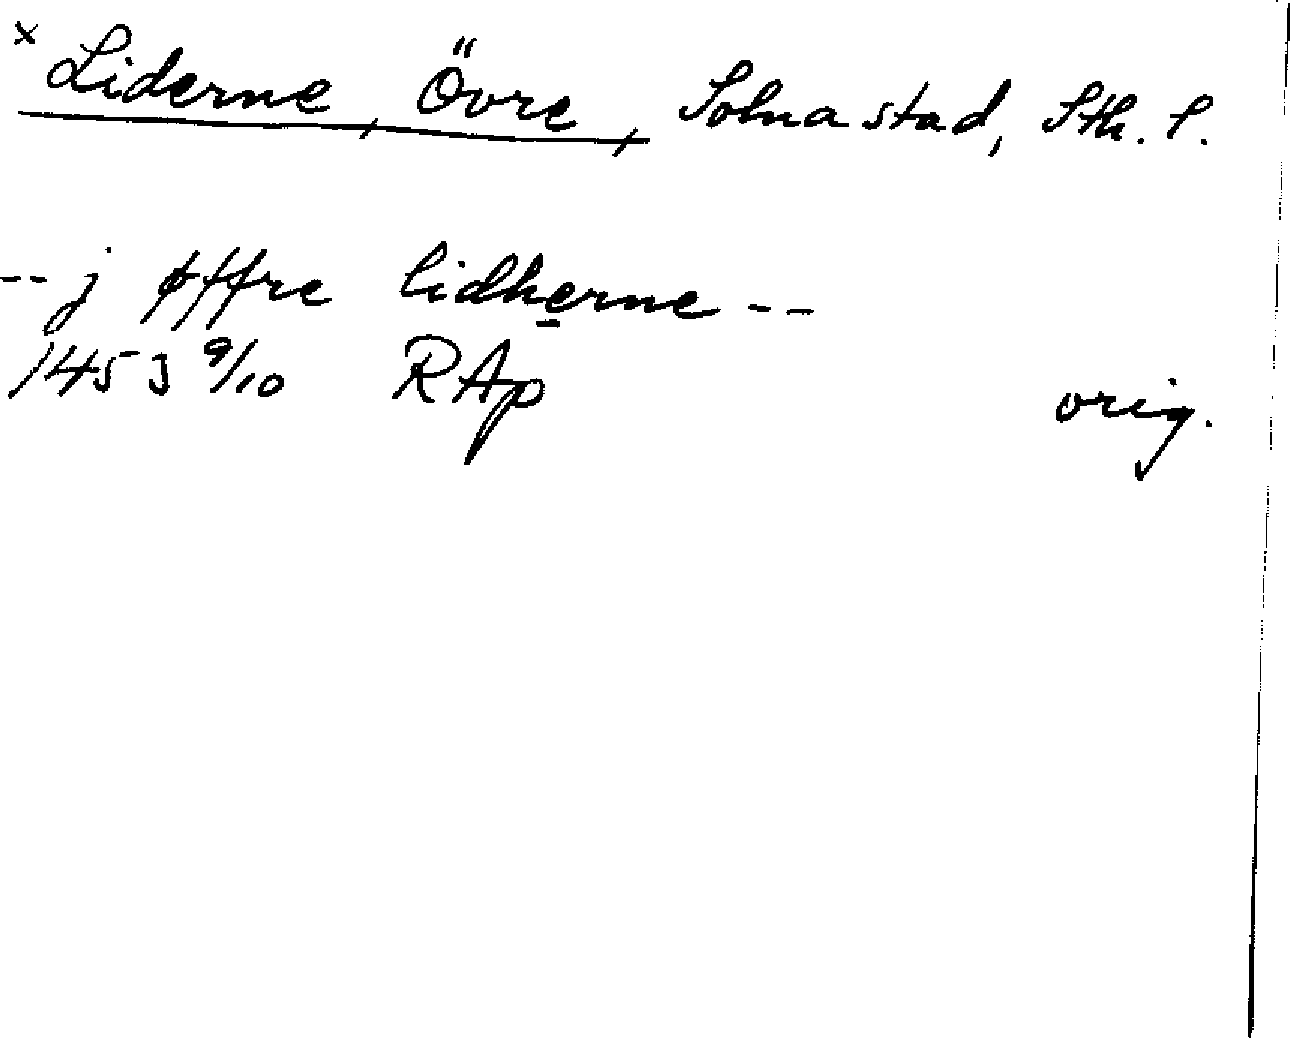 × Liderne, Övre, Solna stad, Sth. l.
-- j øffre lidherne --
1453 9/10 RAp orig.